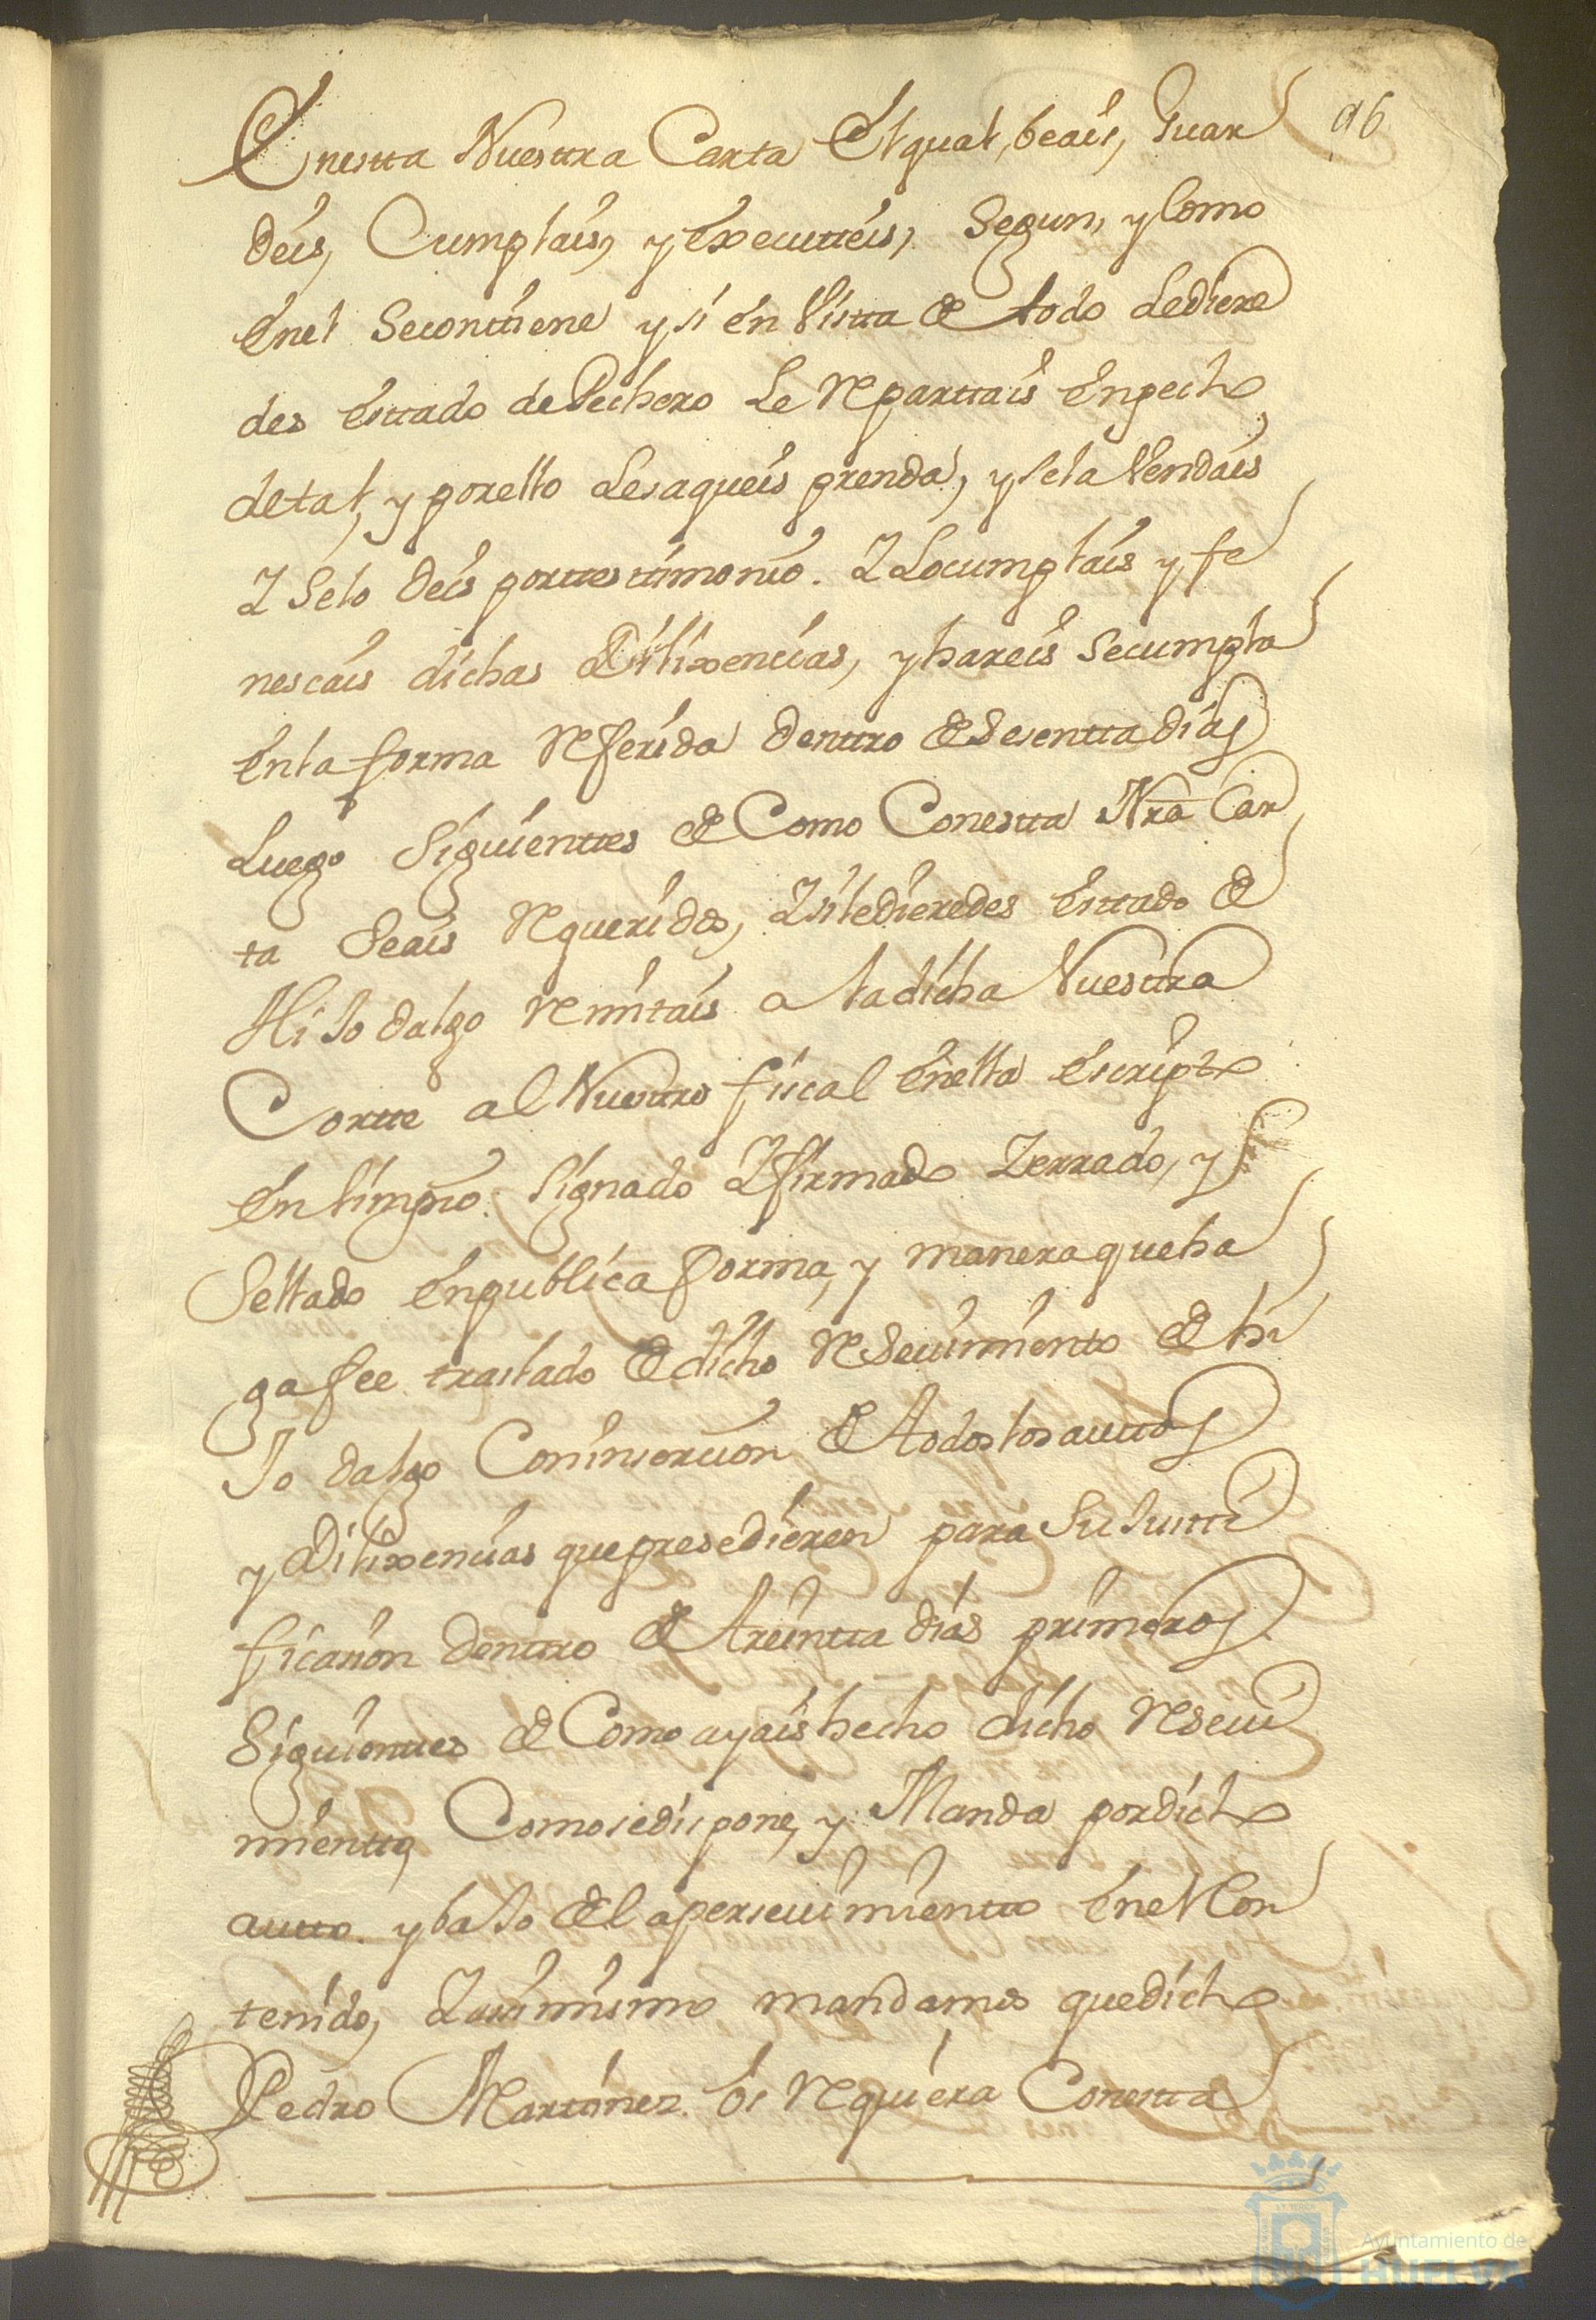 96
Enestta Nuesttra Cartta el qual, beais, Guar
deis, Cumplais, y executteis, Segun, y Como
enel Seconttiene y si en Vistta de todo lediere
des esttado de Pechero Le Reparttais en pecho
de tal, y por ello Lesaqueis prenda, y sela Vendais
Y Selo deis porttesttimonio. Y Locumplais y fe
nescais dichas Dilixencias, y hareis Secumpla
enla forma Referida denttro de Sesentta dias
Luego Siguienttes de Como Conestta Nra Car
ta Seais Requerido, Y siledieredes esttado de
HiJodalgo Remitais a la dicha Nuesttra
Cortte al Nuesttro fiscal enella escripto
en limpio Signado Y firmado Zerrado, y
Sellado en publica forma, y manera que ha
ga fee traslado de dicho Reseuimiento de hi
Jo dalgo Coninsercion de todos los auttos
y Dilixencias que presedieren para Su Justti
ficazion denttro de treintta dias primeros
Siguienttes de Como ayais hecho dicho Reseui
mientto, Como se dispone, y Manda por dicho
autto. y baJo del aperseuimientto enel Con
tenido, Y asimismo mandamos que dicho
Pedro Martinez os Requiera Conestta
Ayuntamiento de
HUELVA